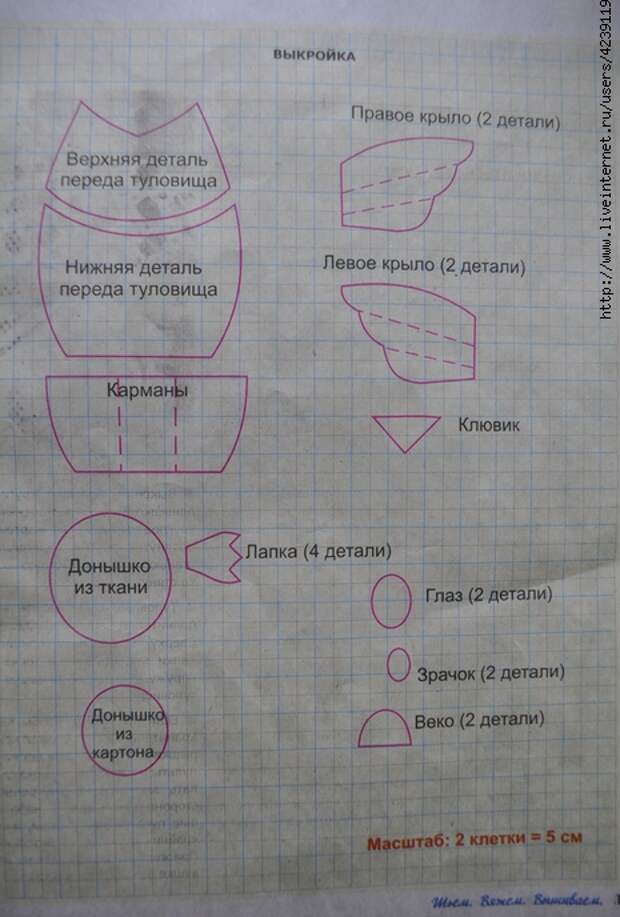 ВЫКРОЙКА
Верхняя деталь
переда туловища
Правое крыло (2 детали)
Нижняя деталь
переда туловища
Левое крыло (2 детали)
Карманы
Клювик
Донышко
из ткани
Лапка (4 детали)
Глаз (2 детали)
Зрачок (2 детали)
Донышко
из
картона
Веко (2 детали)
Масштаб: 2 клетки = 5 см
Шьем. Вяжем. Вышиваем.
http://www.liveinternet.ru/users/4239119